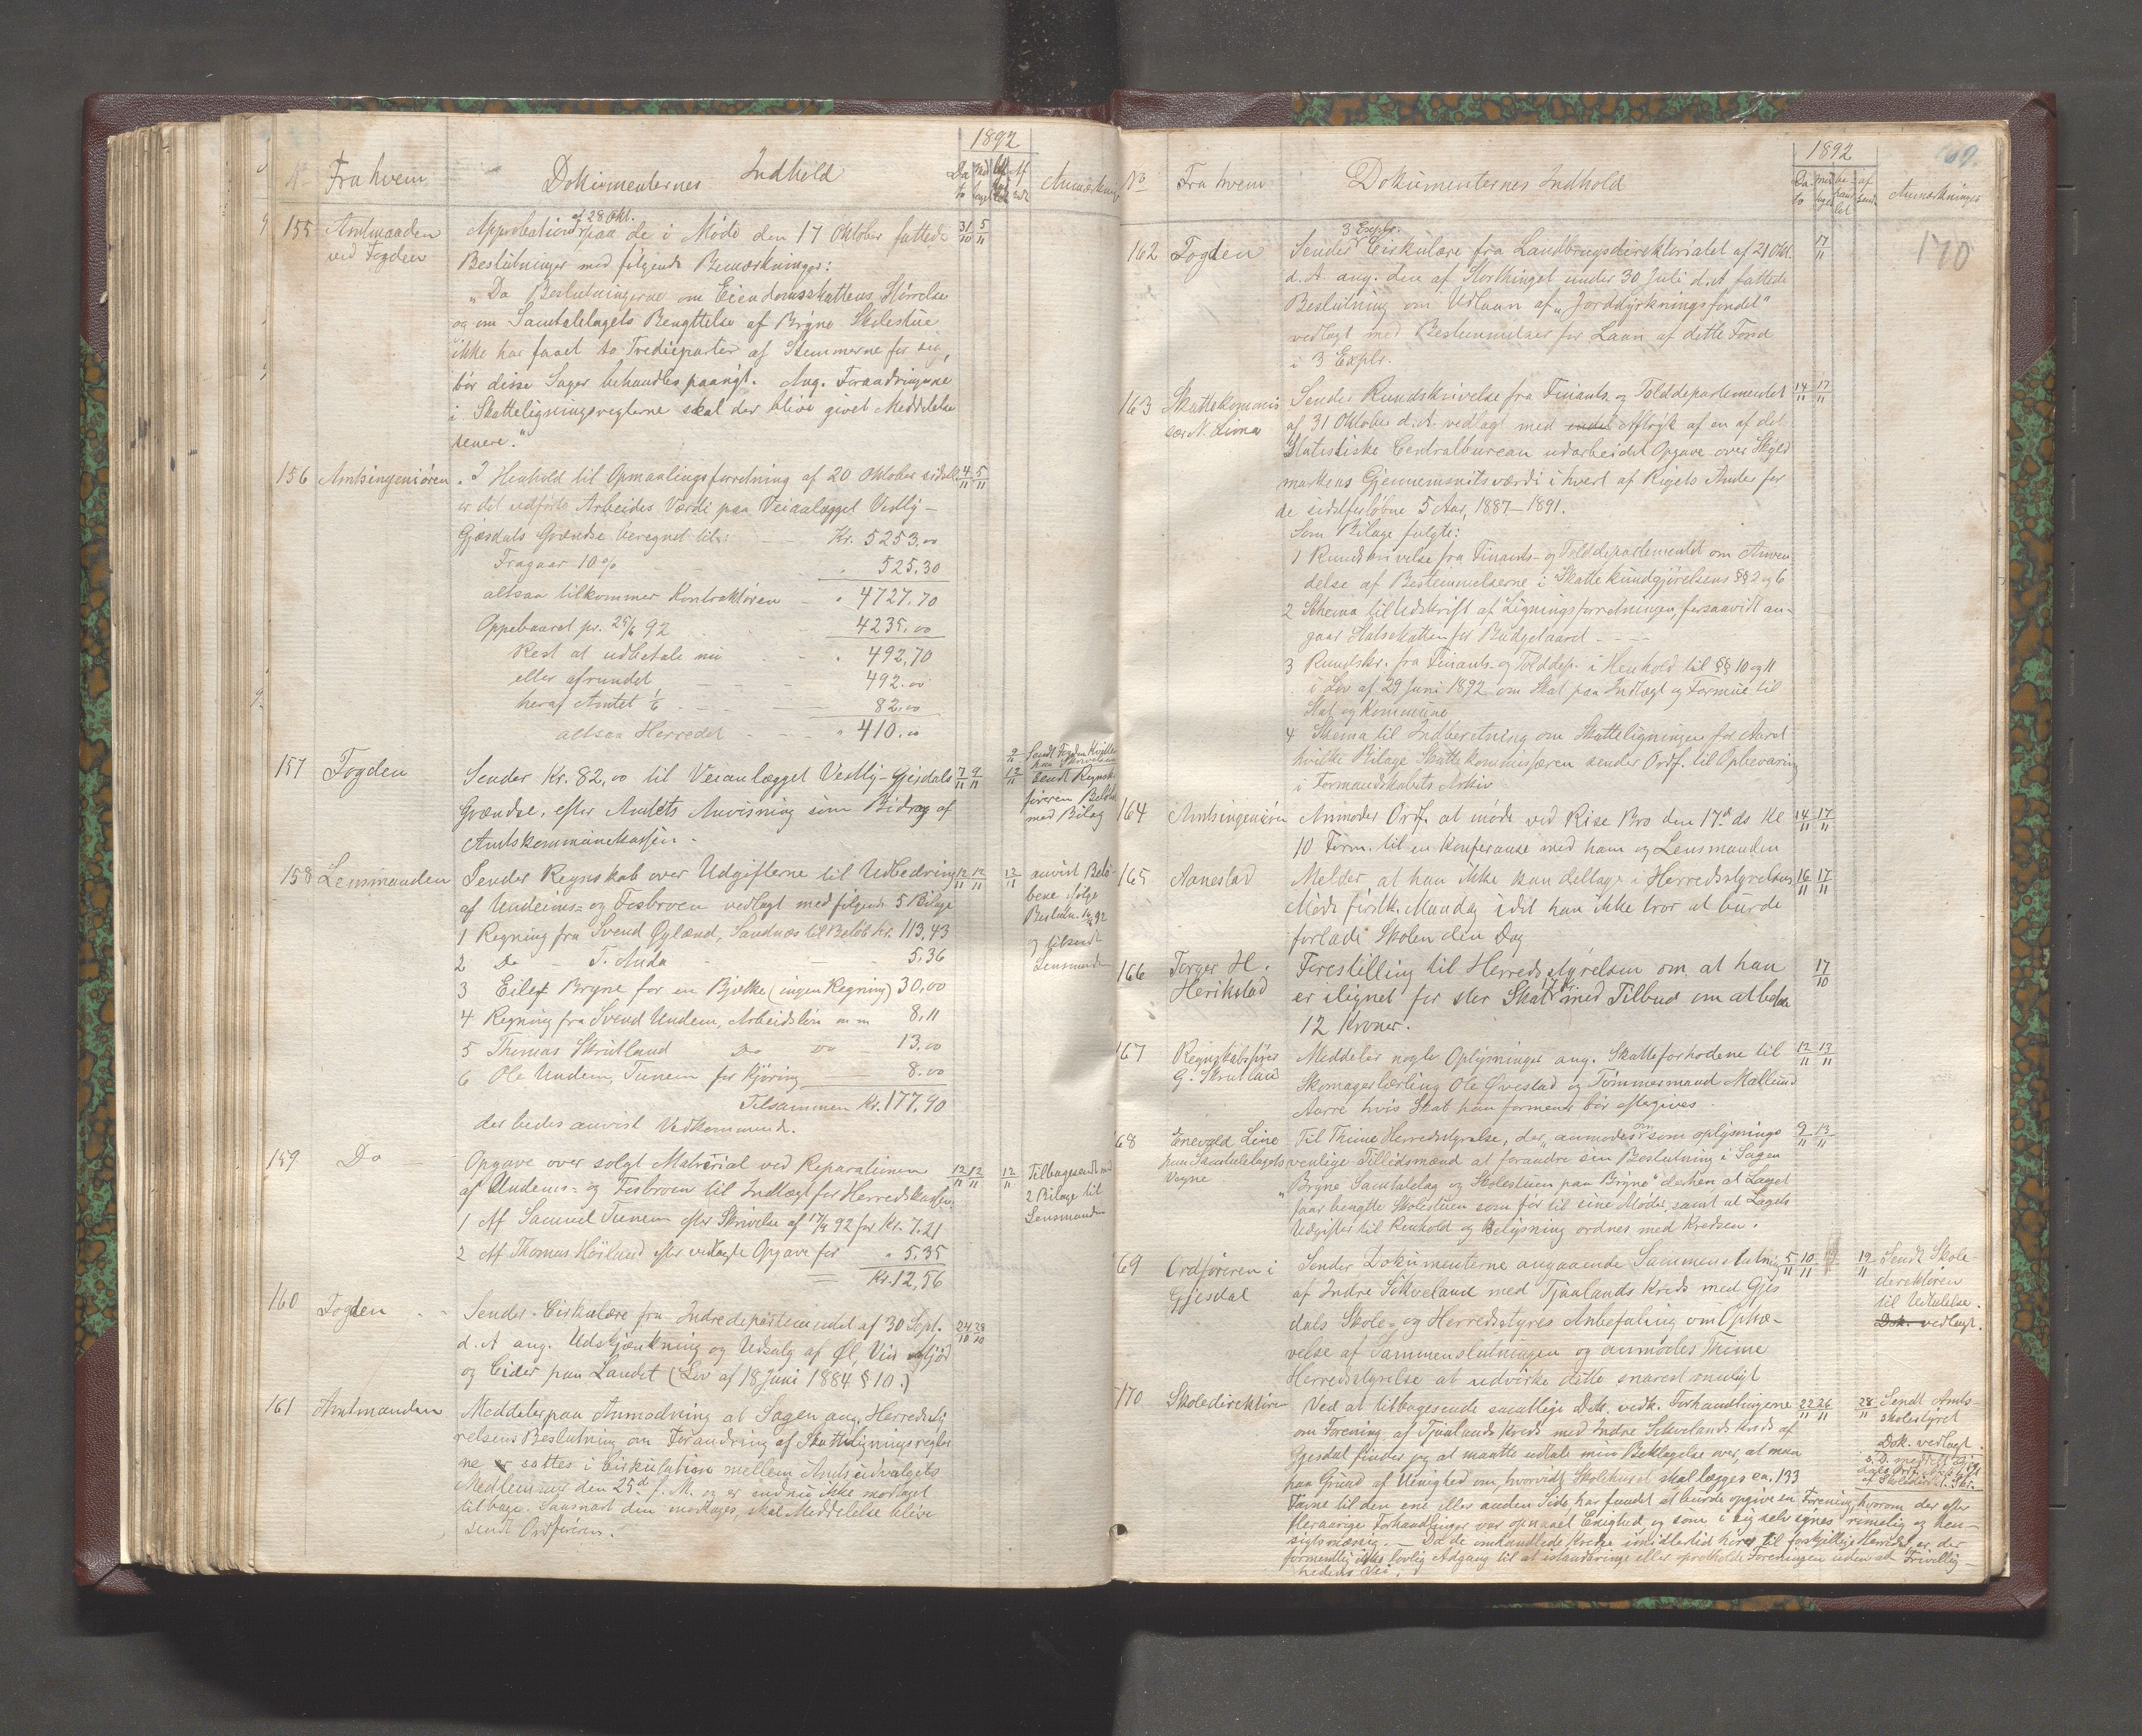 1892
No Fra hvem Dokumenternes Indhold Anmærkning
155 Amtmanden Approbation af 28 Okt. paa de i Møde den 17 Oktober fattede 31/10 5/11
ved Fogden Beslutninger med følgende Bemærkninger:
„Da Beslutningerne om Eiendomsskattens Størrelse
og om Samtalelagets Benyttelse af Bryne Skolestue
ikke har faaet to Tredieparter af Stemmerne for sig,
bør disse Sager behandles paanyt. Ang. Forandringerne
i Skatteligningsreglerne skal der blive givet Meddelelse
senere."
156 Amtsingeniøren I Henhold til Opmaalingsforretning af 20 Oktober sidstl. 4/11 5/11
er det udførte Arbeides Værdi paa Veianlægget Vestly-
Gjesdals Grændse beregnet til: Kr. 5253.00
Fragaar 10% " 525.30
altsaa tilkommer Kontraktøren " 4727.70
Oppebaaret pr. 25/6 92 4235.00
Rest at udbetale nu " 492,70
eller afrundet 492.00
heraf Amtet 1/6 82.00
altsaa Herredet " 410.00
157 Fogden Sender Kr. 82,00 til Veianlægget Vestly-Gjesdals 7/11 9/11 9/11 Sendt Fogden Kvitter
Grændse, efter Amtets Anvisning som Bidrag af 12/11 sendt Regnsk
Amtskommunekassen. føreren Beløbet
med Bilag
158 Lensmanden Sender Regnskab over Udgifterne til Udbedring 12/11 12/11 12/11 anvist Belø-
af Undeims- og Fosbroen vedlagt med følgende 5 Bilage bene ifølge
1 Regning fra Svend Øglænd, Sandnæs til Beløb Kr. 113,43 Beslutn.
2 Do - T. Anda 5.36 og tilsendt
3 Eilef Bryne for en Bjelke (ingen Regning) 30,00 Lensmanden
4 Regning fra Svend Undem, Arbeidsløn m m 8,11
5 Thomas Skrutland Do Do 13,00
6 Ole Undem, Tunem for Kjøring 8.00
Tilsammen Kr. 177,90
der bedes anvist Vedkommende.
159 Do Opgave over solgt Material ved Reparationen 12/11 12/11 12/11 Tilbagesendt med
af Undems- og Fosbroen til Indtægt for Herredskassen 2 Bilage til
1 Af Samuel Tunem efter Skrivelse af 17/9 92 for Kr. 7.21 Lensmanden
2 Af Thomas Høiland efter vedlagte Opgave for " 5,35
Kr. 12,56
160 Fogden Sender Cirkulære fra Indredepartementet af 30 Sept. 24/10 28/10
d. A ang. Udskjænkning og Udsalg af Øl, Vin, Mjød
og Cider paa Landet (Lov af 18 Juni 1884 § 10.)
161 Amtmanden Meddeler paa Anmodning at Sagen ang. Herredssty
relsens Beslutning om Forandring af Skatteligningsregler
ne er sattes i Cirkulation mellem Amtsudvalgets
Medlemmer den 25d f. M. og er endnu ikke modtaget
tilbage. Saasnart den modtages, skal Meddelelse blive
sendt Ordføren.
1892 169.
No Fra hvem Dokumenternes Indhold Anmærkninger
170
162 Fogden Sender 3 Expl. Cirkulære fra Landbrugsdirektoriatet af 21 Okt. 17/11
d. A. ang. den af Storthinget under 30 Juli d. A fattede
Beslutning om Udlaan af „Jorddyrkningsfondet"
vedlagt med Bestemmelser for Laan af dette Fond
i 3 Explr.
163 Skattekommis Sender Rundskrivelse fra Finants- og Tolddepartementet 14/11 17/11
sær N. Lima af 31 Oktober d. A. vedlagt med Aftryk af en af det
Statistiske Centralbureau udarbeidet Opgave over Skyld
markens Gjennemsnitsværdi i hvert af Rigets Amter for
de sidstforløbne 5 Aar, 1887-1891.
Som Bilage fulgte:
1 Rundskrivelse fra Finants- og Tolddepartementet om Anven
delse af Bestemmelserne i Skattekundgjørelsens §§ 2 og 6
2 Schema til Udskrift af Ligningsforretningen, forsaavidt an-
gaar Statsskatten for Budgetaaret
3 Rundskr. fra Finants- og Tolddep. i Henhold til §§ 10 og 11
i Lov af 29 Juni 1892 om Skat paa Indtægt og Formue til
Stat og Kommune
4 Skema til Indberetning om Skatteligningen for Aaret
hvilke Bilage Skattekommissæren sender Ordf. til Opbevaring
i Formandskabets Arkiv
164 Amtsingeniøren Anmoder Ordf. at møde ved Rise Bro den 17d ds Kl 14/11 17/11
10 Form. til en Konferanse med ham og Lensmanden
165 Aanestad Melder, at han ikke kan deltage i Herredsstyrelsens 16/11 17/11
Møde førstk. Mandag idet han ikke tror at burde
forlade Skolen den Dag
166 Torger H. Forestilling til Herredsstyrelsen om at han 17/10
Herikstad er ilignet for stor Skat med Tilbud om at betale
12 Kroner.
167 Regnskabsfører Meddeler nogle Oplysninger ang. Skatteforhodene til 12/11 13/11
G. Skrutland Skomagerlærling Ole Øvestad og Tømmermand Mallius
Aarre hvis Skat han formener bør eftergives.
168 Enevold Line Til Thime Herredsstyrelse, der anmodes om som oplysnings 9/11 13/11
paa Samtalelagets venlige Tillidsmænd at forandre sin Beslutning i Sagen
Vegne „Bryne Samtalelag og Skolestuen paa Bryne" derhen at Laget
faar benytte Skolestuen som før til sine Møder, samt at Lagets
Udgifter til Renhold og Belysning ordnes med Kredsen.
169 Ordføreren i Sender Dokumenterne angaaende Sammenslutning 5/11 10/11 19/11 Sendt Skole-
Gjesdal af Indre Sikveland med Tjaalands Kreds med Gjes direktøren
dals Skole- og Herredsstyres Anbefaling om Ophæ- til Udtalelse.
velse af Sammenslutningen og anmodes Thime Dok. vedlagt.
Herredsstyrelse at udvirke dette snarest muligt
170 Skoledirektøren Ved at tilbagesende samtlige Dok. vedk. Forhandlingerne 22/11 26/11 28/11 Sendt Amts-
om Forening af Tjaalands Kreds med Indre Sikvelands Kreds af skolestyret
Gjesdal finder jeg at maatte udtale min Beklagelse over, at man Dok. vedlagt.
paa Grund af Uenighed om, hvorvidt Skolehuset skal lægges ca. 133
Favne til den ene eller anden Side, har fundet at burde opgive en Forening, hvorom der efter
fleraarige Forhandlinger var opnaaet Enighed og som i sig selv synes rimelig og hen-
sigtsmæssig. - Da de omhandlede Kredse imidlertid hører til forskjellige Herreder, er der
formentlig ikke lovlig Adgang til at istandbringe eller opretholde Foreningen uden ad Frivillig-
hedens Vei.